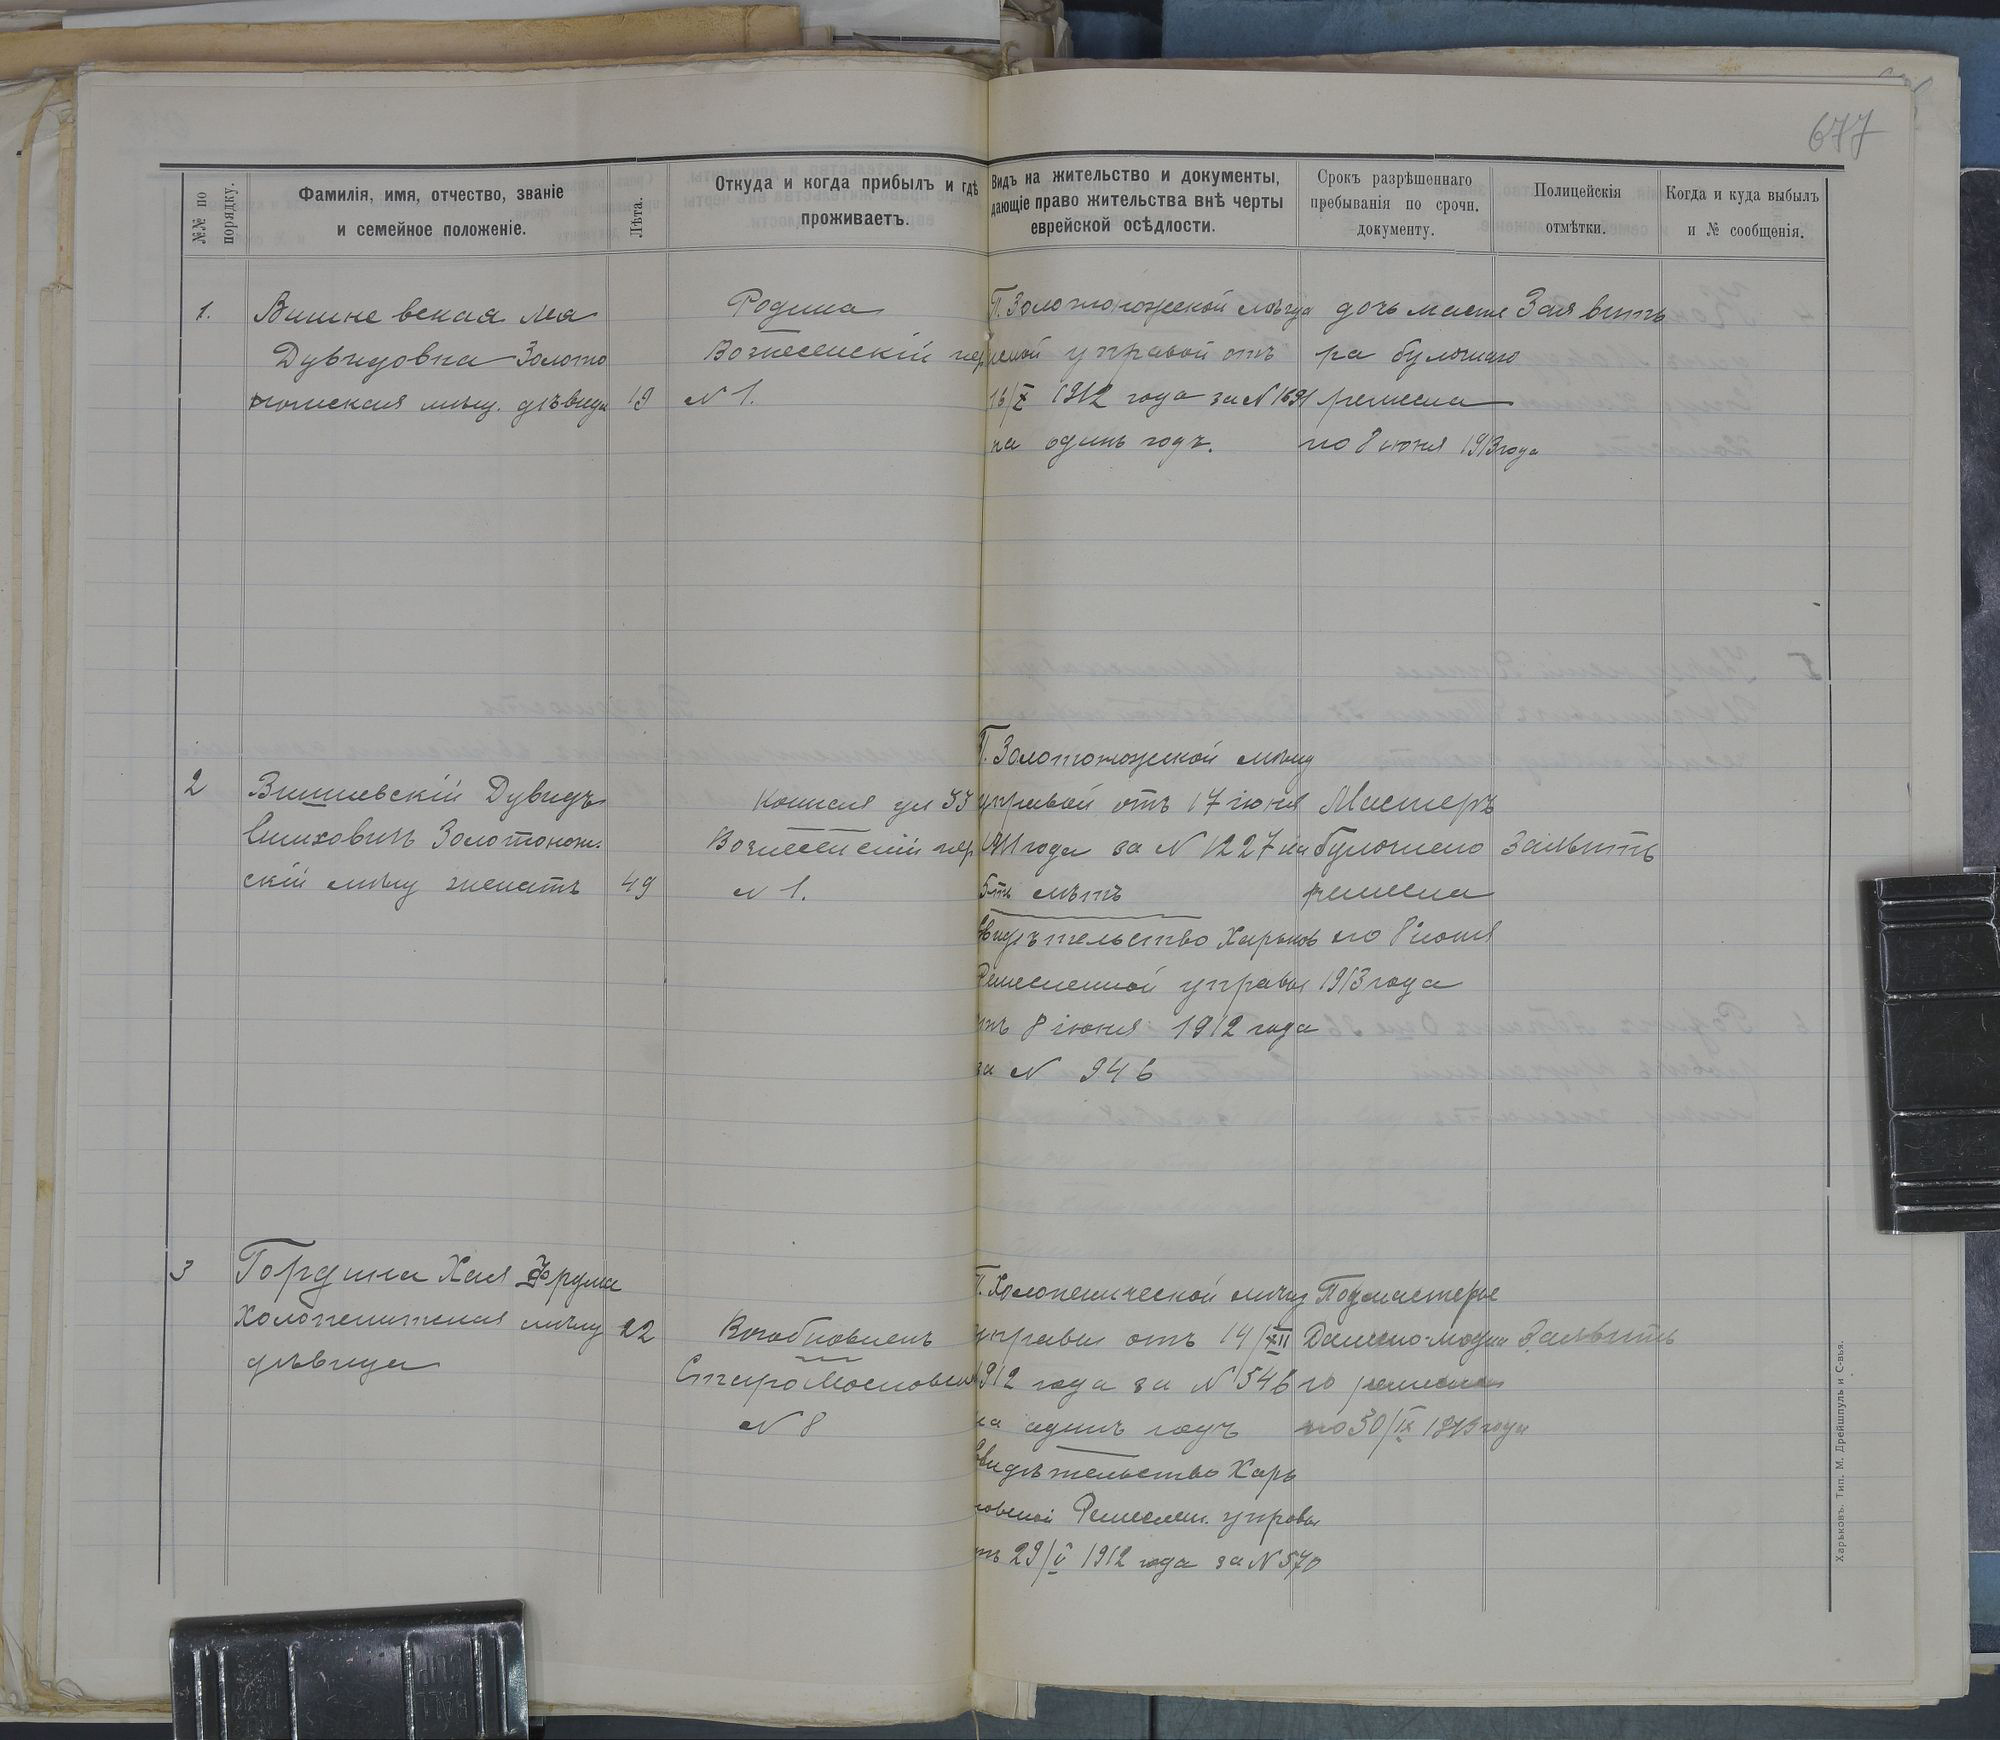 677
№№ по порядку.
Фамилія, имя, отчество, званіе
и семейное положеніе.
Лѣта.
Откуда и когда прибылъ и гдѣ
проживаетъ.
Видъ на жительство и документы,
дающіе право жительства внѣ черты
еврейской осѣдлости.
Срокъ разрѣшеннаго
пребыванія по срочн.
документу.
Полицейскія
отмѣтки.
Когда и куда выбылъ
и № сообщенія.
1.
Вишневская Лея
Дувидовна Золото
ношская мѣщ. дѣвица
19
Родина
Вознесенскій пер
N 1.
П. Золотоношской мѣщ
управой отъ
16/X 1912 года за N 1691
на одинъ годъ.
дочь масте
ра булочнаго
ремесла
по 8 июня 1913 года
Заявить
2
Вишневскій Дувидъ
Симховичъ Золотонош.
скій мѣщ женатъ
49
ул 33
Вознесенскій пер
N 1.
П. Золотоношской мѣщ
управой отъ 17 іюня
1911 года за N 1227 на
5ть лѣтъ
Свидѣтельство Харьков
Ремесленной управы
отъ 8 іюня 1912 года
за N 946
Мастеръ
булочнаго
ремесла
по 8 іюня
1913 года
Заявить
3
Гордина Хая Фрума
Холопеничская мѣщ
дѣвица
22
Возобновленъ
Старо Московская
N 8
П. Холопеничской мѣщ
управы отъ 14/XII
1912 года за N 546
на одинъ годъ
Свидѣтельство Харь
ковской Ремеслен. управы
отъ 29/V 1912 года за N 570
Подмастерье
Дамско-модна
го ремесла
по 30/IX 1913 года
Заявить
Харьковъ. Тип. М. Дрейшпуль и С-вья.